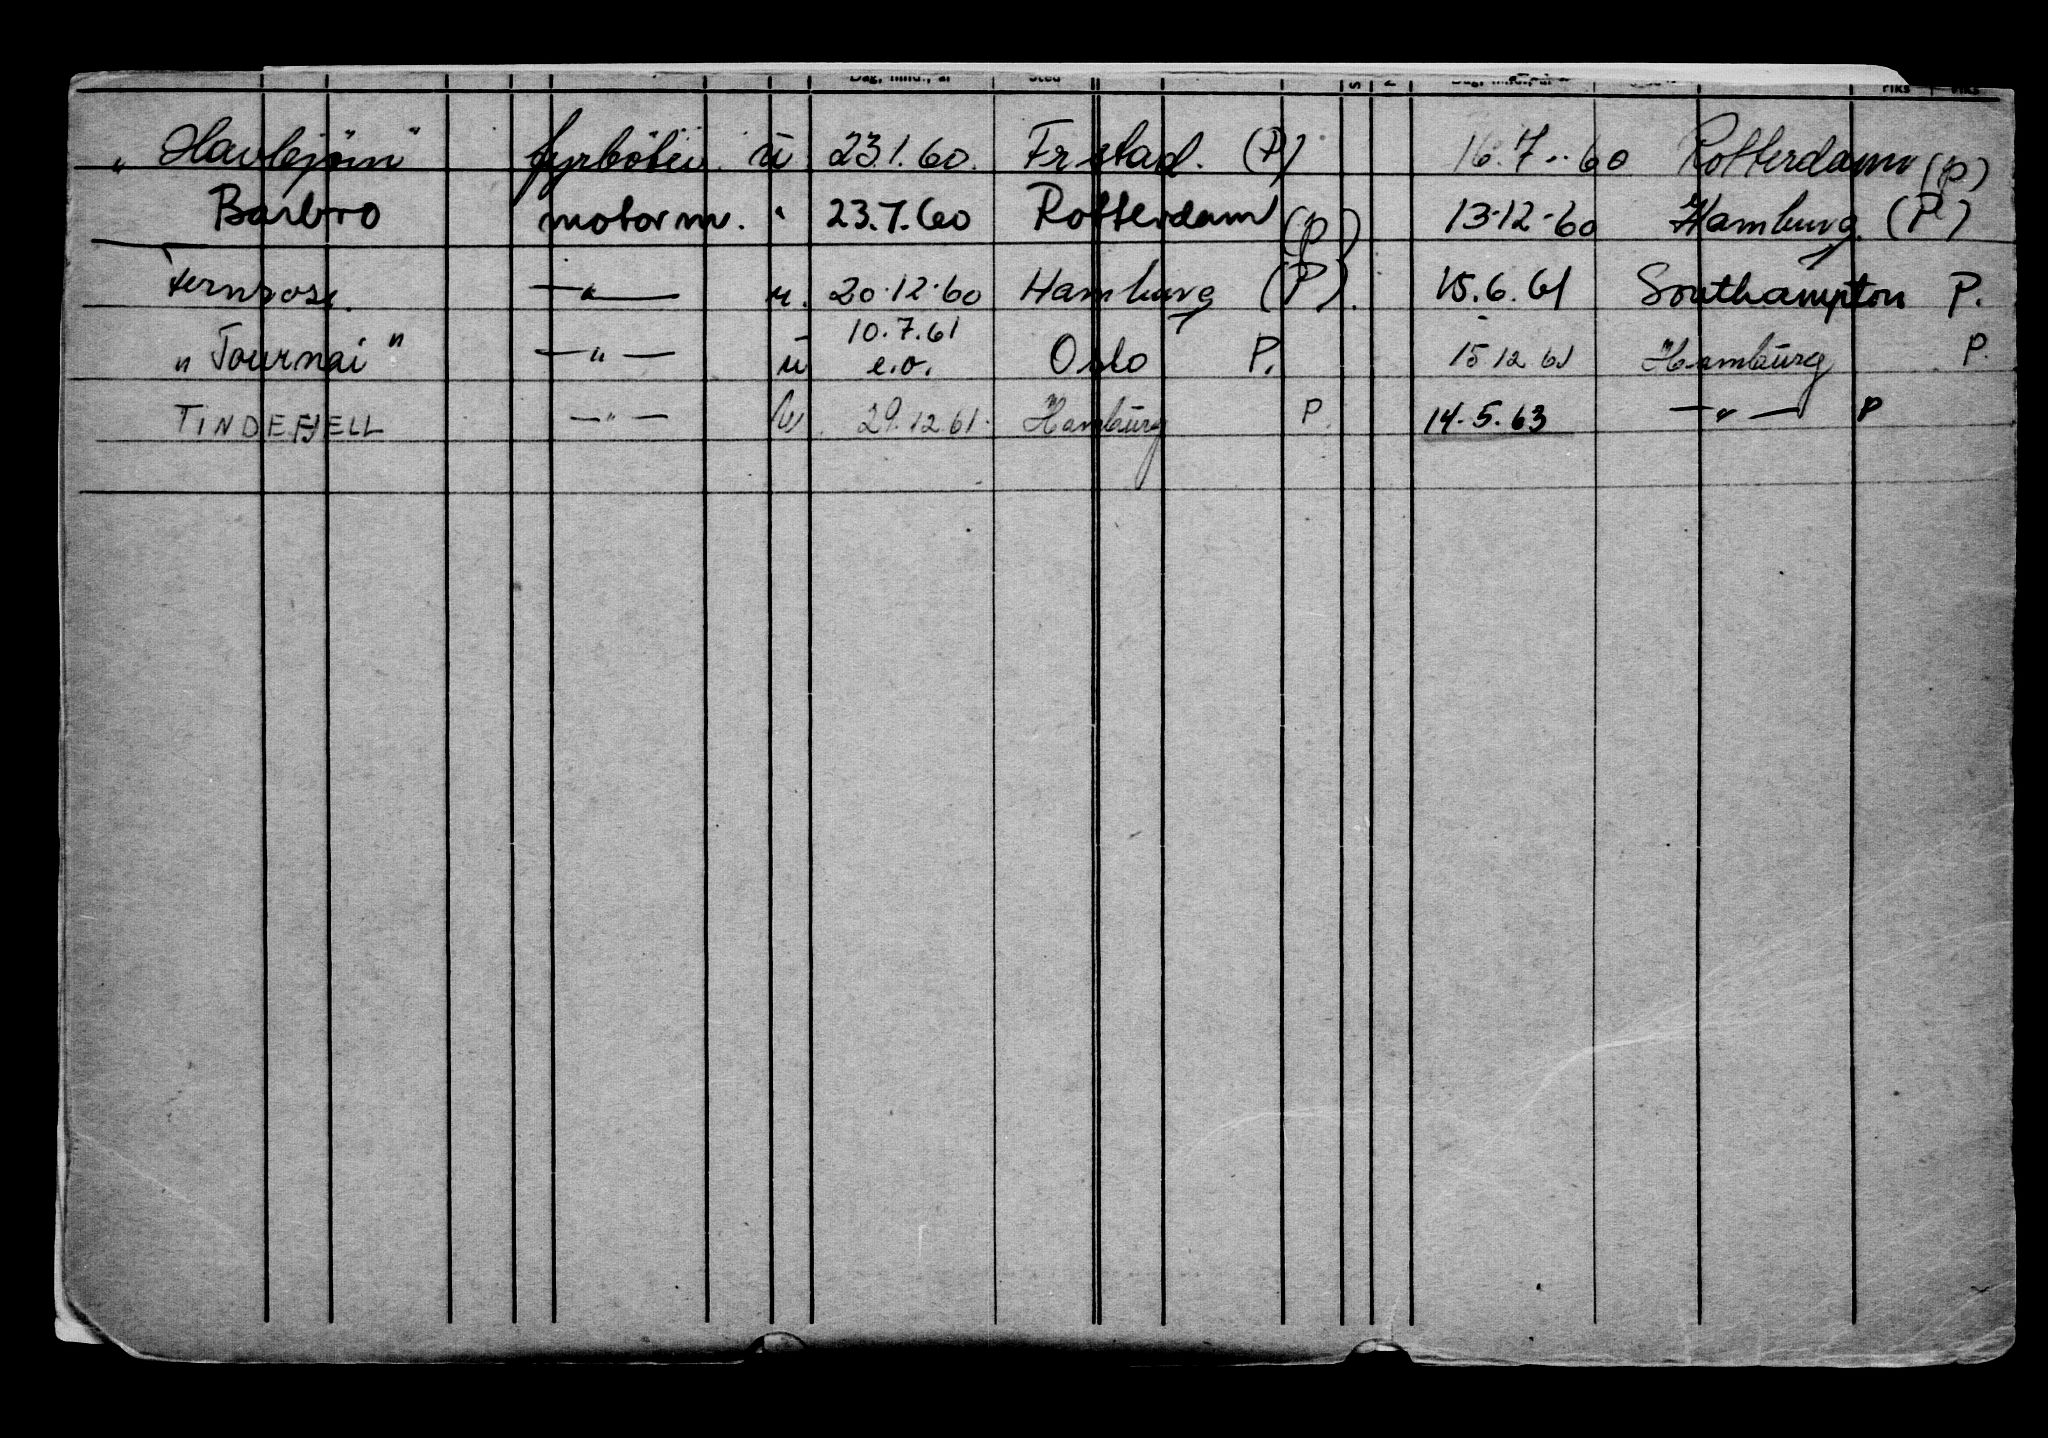 Dag, mnd., år Sted S N Dag, mnd., år riks riks
„ Havbjørn " fyrbøter. ū 23.1.60. Fr.stad. (P) 16.7..60 Rotterdam (P)
Barbro motorm. " 23.7.60 Rotterdam (P) 13-12-60 Hamburg. (P)
Fernrose. —"— u. 20.12.60 Hamburg (P). 15.6.61 Southampton P.
10.7.61
„ Tournai " —"— ū e.o. Oslo P. 15 12 61 Hamburg P.
TINDEFJELL —"— u 29.12.61. Hamburg P 14.5.63 —"— P